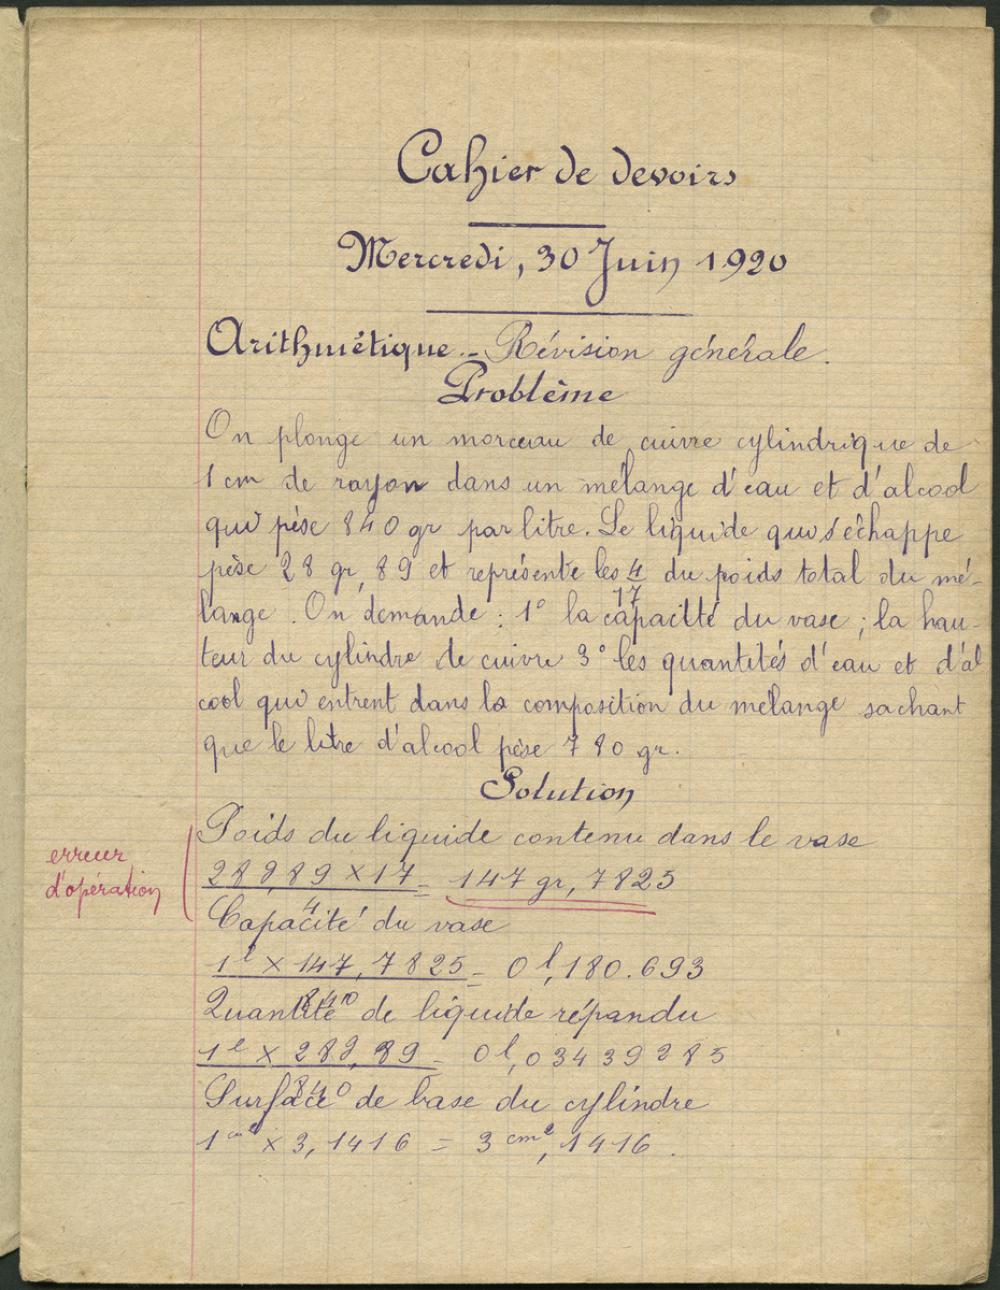 Cahier de devoirs
Mercredi, 30 Juin 1920
Arithmétique.- Révision générale.
Problème
On plonge un morceau de cuivre cylindrique de
1 cm de rayon dans un mélange d'eau et d'alcool
qui pèse 840 gr par litre. Le liquide qui s'échappe
pèse 28 gr, 89 et représente les 4/17 du poids total du mé-
lange. On demande : 1° la capacité du vase ; la hau-
teur du cylindre de cuivre 3° les quantités d'eau et d'al
cool qui entrent dans la composition du mélange sachant
que le litre d'alcool pèse 780 gr.
Solution
Poids du liquide contenu dans le vase
erreur
d'opération
28g,89 × 17 / 4 = 147 gr, 7825
Capacité du vase
1l × 147, 7825 / 840 = 0 l, 180.693
Quantité de liquide répandu
1l × 28g, 89 / 840 = 0 l, 03439285
Surface de base du cylindre
1 cm² × 3, 1416 = 3 cm², 1416.